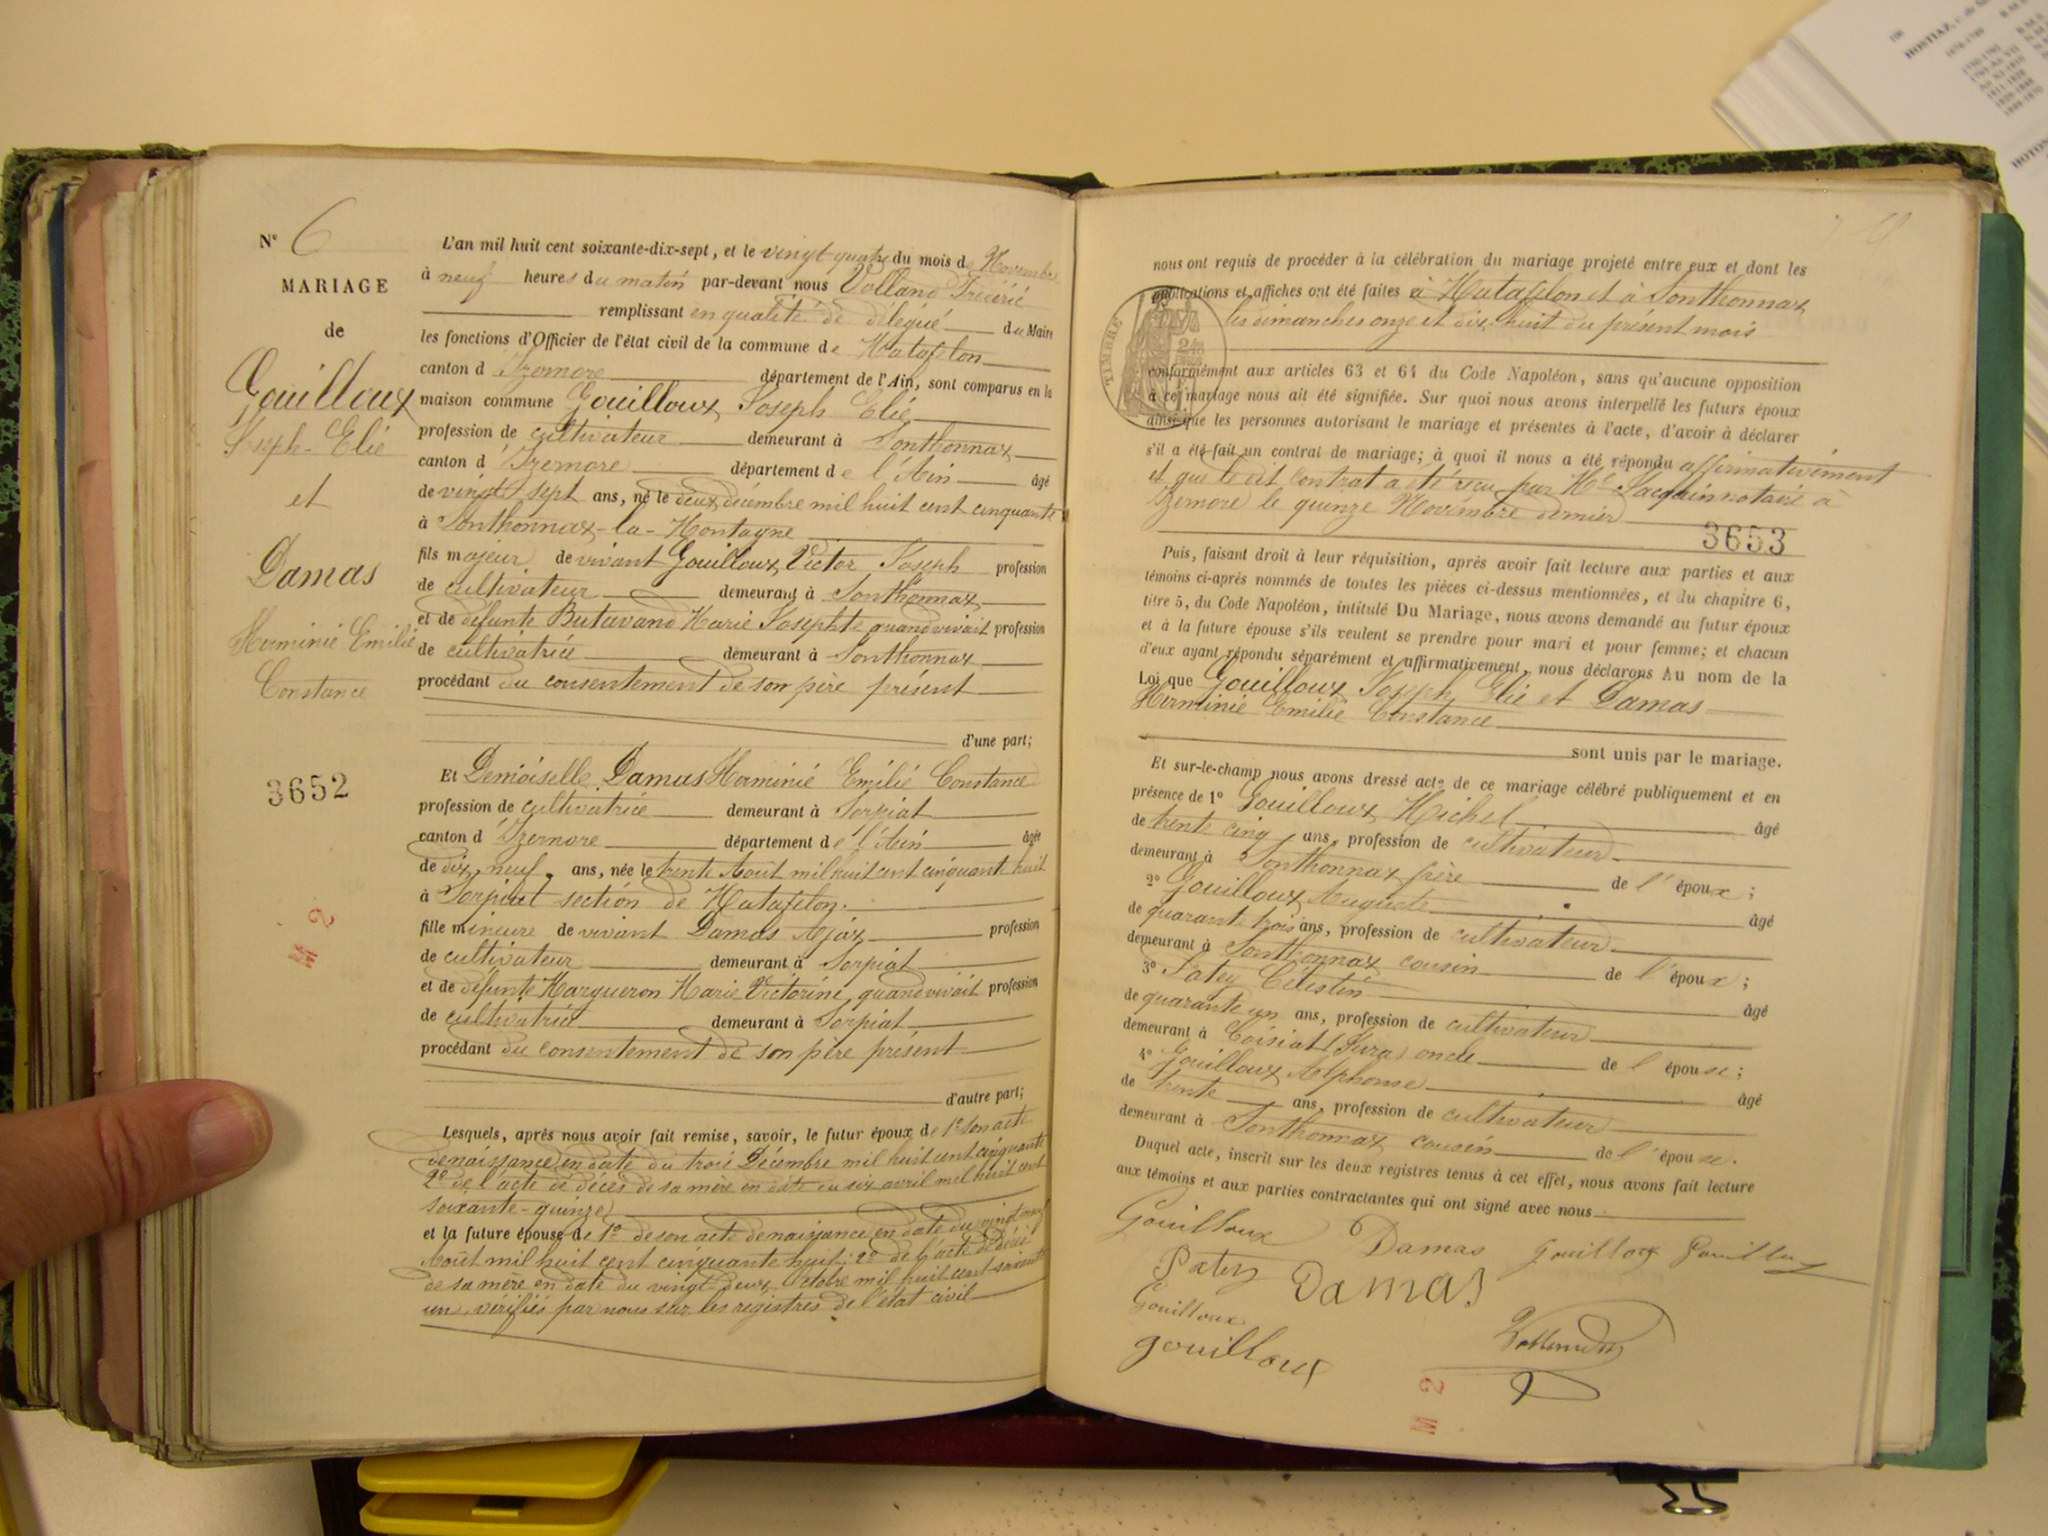 N° 6
MARIAGE
de
Gouilloux
Joseph-Elie
et
Damas
Herminie Emilie
Constance
3652
M 2
L'an mil huit cent soixante-dix-sept, et le vingt-quatre du mois de Novembre
à neuf heures du matin par-devant nous Volland Frédéric
remplissant en qualité de délégué du Maire
les fonctions d'Officier de l'état civil de la commune de Matafelon
canton d'Izernore département de l'Ain, sont comparus en la
maison commune Gouilloux Joseph Elie
profession de cultivateur demeurant à Sonthonnax
canton d'Izernore département de l'Ain âgé
de vingt sept ans, né le deux décembre mil huit cent cinquante
à Sonthonnax-la-Montagne
fils majeur de vivant Gouilloux Victor Joseph profession
de cultivateur demeurant à Sonthonnax
et de défunte Butavand Marie Josephte quand vivait profession
de cultivatrice demeurant à Sonthonnax
procédant du consentement de son père présent
d'une part;
Et Demoiselle Damas Herminie Emilie Constance
profession de cultivatrice demeurant à Corpiat
canton d'Izernore département de l'Ain âgée
de dix neuf ans, née le trente Aout mil huit cent cinquante huit
à Corpiat section de Matafelon.
fille mineure de vivant Damas Ajax profession
de cultivateur demeurant à Corpiat
et de défunte Margueron Marie Victorine, quand vivait profession
de cultivatrice demeurant à Corpiat
procédant du consentement de son père présent
d'autre part;
Lesquels, après nous avoir fait remise, savoir, le futur époux de 1° son acte
de naissance en date du trois Décembre mil huit cent cinquante
2° de l'acte de décès de sa mère en date du six avril mil huit cent
soixante-quinze
et la future épouse de 1° de son acte de naissance en date du
Août mil huit cent cinquante huit; 2° de l'acte de décès
de sa mère en date du vingt deux Octobre mil huit cent soixante
un, vérifiés par nous sur les registres de l'état civil
nous ont requis de procéder à la célébration du mariage projeté entre eux et dont les
publications et affiches ont été faites à Matafelon et à Sonthonnax
les dimanches onze et dix-huit du présent mois
TIMBRE
conformément aux articles 63 et 64 du Code Napoléon, sans qu'aucune opposition
à ce mariage nous ait été signifiée. Sur quoi nous avons interpellé les futurs époux
ainsi que les personnes autorisant le mariage et présentes à l'acte, d'avoir à déclarer
s'il a été fait un contrat de mariage; à quoi il nous a été répondu affirmativement
et que le dit contrat a été reçu par Me Jacquin notaire à
Izernore le quinze Novembre dernier
3653
Puis, faisant droit à leur réquisition, après avoir fait lecture aux parties et aux
témoins ci-après nommés de toutes les pièces ci-dessus mentionnées, et du chapitre 6,
titre 5, du Code Napoléon, intitulé Du Mariage, nous avons demandé au futur époux
et à la future épouse s'ils veulent se prendre pour mari et pour femme; et chacun
d'eux ayant répondu séparément et affirmativement, nous déclarons Au nom de la
Loi que Gouilloux Joseph Elie et Damas
Herminie Emilie Constance
sont unis par le mariage.
Et sur-le-champ nous avons dressé acte de ce mariage célébré publiquement et en
présence de 1° Gouilloux Michel âgé
de trente cinq ans, profession de cultivateur
demeurant à Sonthonnax frère de l'époux;
2° Gouilloux Auguste âgé
de quarante trois ans, profession de cultivateur
demeurant à Sonthonnax cousin de l'époux;
3° Patey Célestin âgé
de quarante un ans, profession de cultivateur
demeurant à Coisiat (Jura) oncle de l'épouse;
4° Gouilloux Alphonse âgé
de trente ans, profession de cultivateur
demeurant à Sonthonnax cousin de l'épouse.
Duquel acte, inscrit sur les deux registres tenus à cet effet, nous avons fait lecture
aux témoins et aux parties contractantes qui ont signé avec nous
Gouilloux Damas Gouilloux Gouilloux
Patey Damas
Gouilloux
gouilloux
M 2